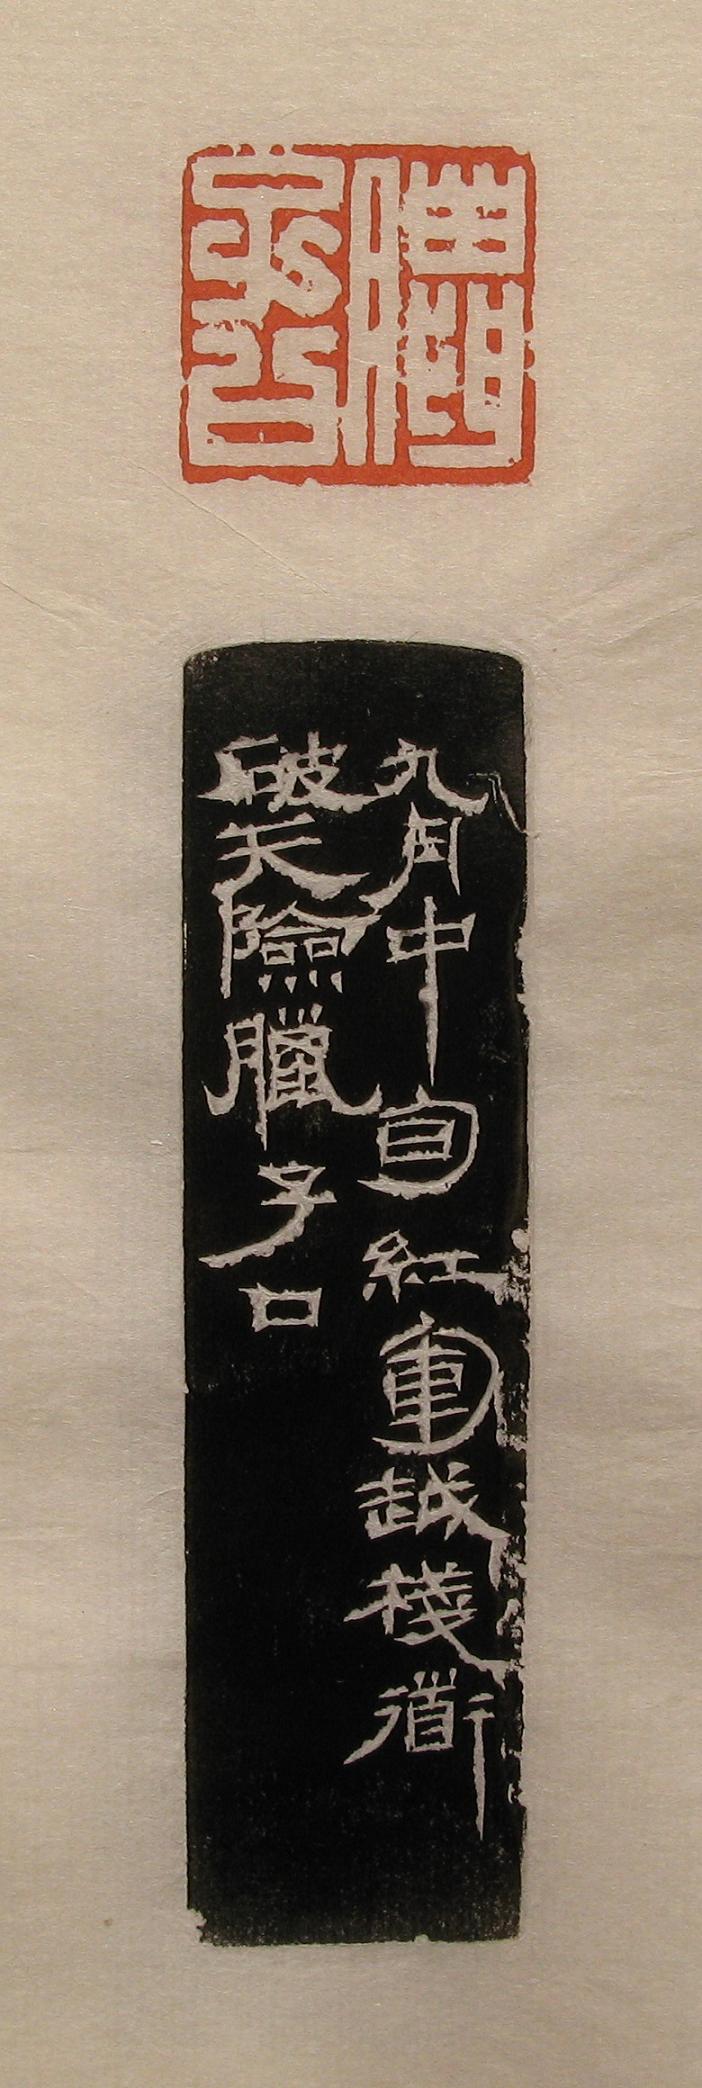 九月中旬紅軍越棧道
破天險臘子口